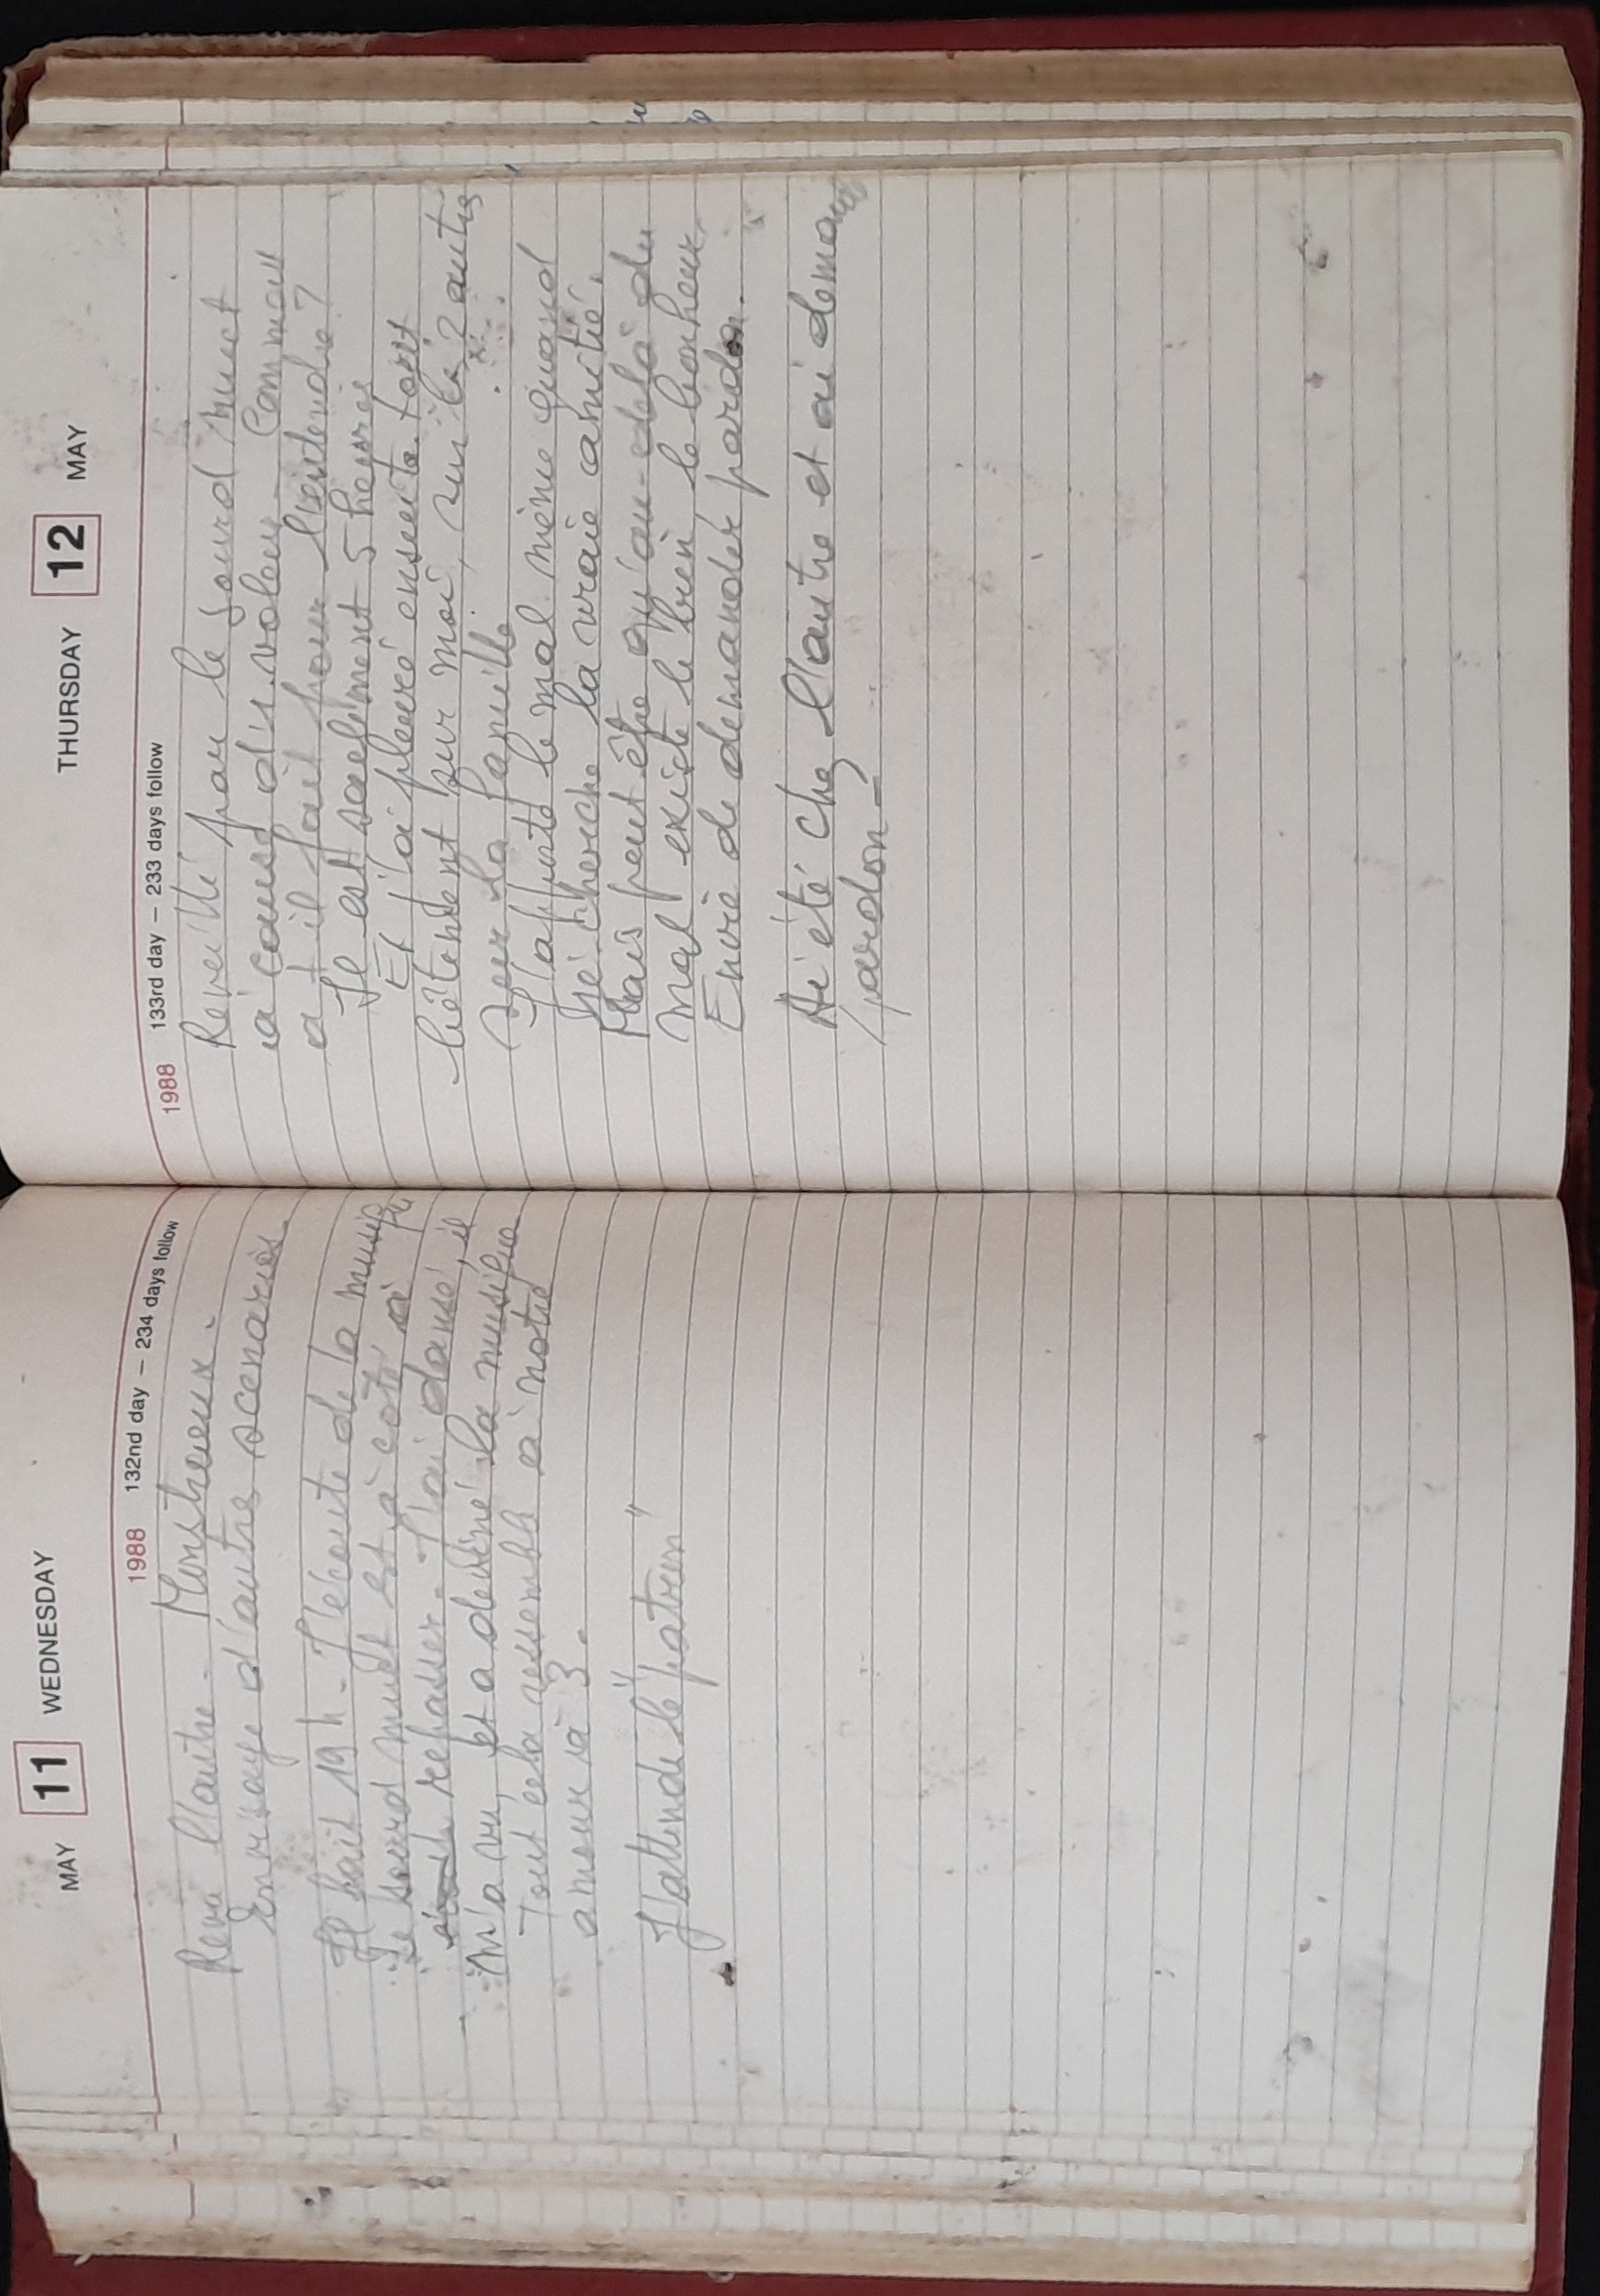 MAY 11 WEDNESDAY
1988 132nd day – 234 days follow
Revu l'autre - Monstrueux.
Envisage d'autre scenariès.
Il fait 19 h - J'écoute de la musiq
Le sourd muet est à coté à pu
repasser. J'ai dansé, il
m'a vu, et a deviné la musique
Tout cela ressemble à notre
amour à 3.
J'attends le "patron"
THURSDAY 12 MAY
1988 133rd day – 233 days follow
Reveillé par le sourd muet
à cause d'un voleur - Comment
a t-il fait pour l'entendre ?
Il est seulement 5 heures
Et j'ai pleuré ensuite tout
bêtement sur moi, sur les 2 autres
sur la famille
J'affute le mal même quand
je cherche la vraie amitié.
Mais peut être qu'au-delà du
mal existe le bien le bonheur
Envie de demander pardon.
Ai été chez l'autre et ai demandé
pardon -